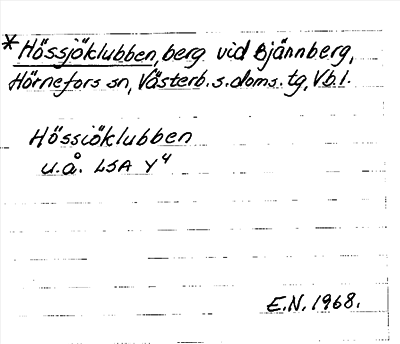 * Hössjöklubben, berg vid Bjännberg,
Hörnefors sn, Västerb. s. doms. tg, Vb.l.
Hössiöklubben
u.å. LSA Y4
E.N. 1968.